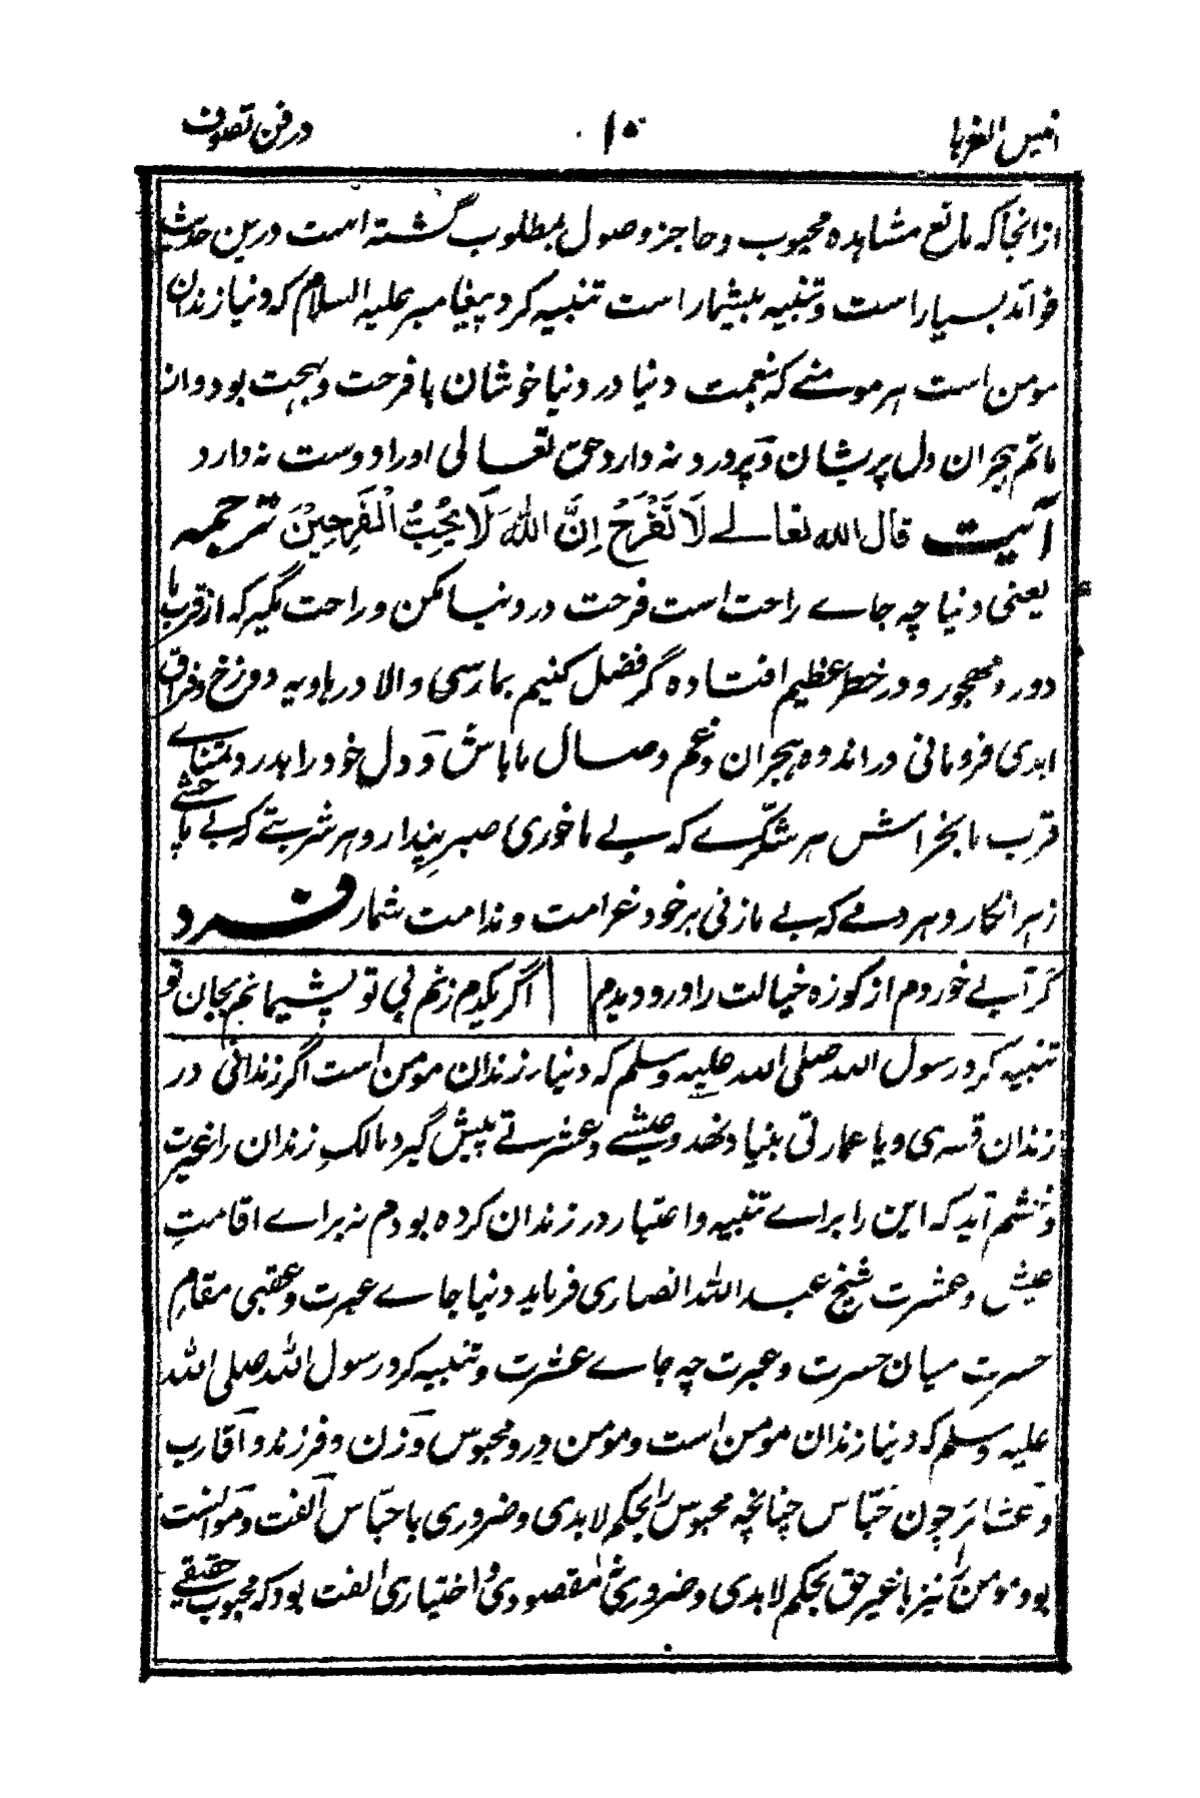 انیس الغربا ۱۵ در فن تصوف
از انجا که مانع مشاهده محبوب و حاجز وصول بمطلوب گشته است درین حدیث
فوائد بسیار است و تنبیه بیشمار است تنبیه کرد پیغامبر علیه السلام که دنیا زندان
مومن است هر مومنے که بنعمت دنیا در دنیا خوشان با فرحت و بهجت بود و از
ماتم هجران دل پریشان و پر درد نه دارد حق تعالی او را دوست نه دارد
آیت قال الله تعالے لَا تَفْرَحْ اِنَّ اللّٰهَ لَا يُحِبُّ الْفَرِحِيْنَ ترجمه
یعنی دنیا چه جاے راحت است فرحت در دنیا مکن و راحت مگیر که از قرب ما
دور و مهجور و در خطر عظیم افتاده گر فضل کنیم بما رسی والا در هاویه دوزخ و فراق
ابدی فرومانی در اندوه هجران و غم وصال ما باش و دل خود را بدرد و تمناے
قرب ما بخراش هر شکّرے که بے ما خوری صبر پندار و هر شربتے که بے ما چشی
زهر انگار و هر دمے که بے ما زنی بر خود غرامت و ندامت شمار فرد
گر آبے خوردم از کوزه خیالت را درو دیدم اگر یکدم زنم بی تو پشیمانم بجان تو
تنبیه کرد رسول الله صلی الله علیه وسلم که دنیا زندان مومن است اگر زندانی در
زندان قسدی و یا عمارتی بنیاد نهد و عیشے و عشرتے پیش گیرد مالکِ زندان را غیرت
و خشم آید که این را براے تنبیه و اعتبار در زندان کرده بودم نه براے اقامتِ
عیش و عشرت شیخ عبد الله انصاری فرماید دنیا جاے عبرت و عقبی مقامِ
حسرت میان حسرت و عبرت چه جاے عشرت و تنبیه کرد رسول الله صلی الله
علیه وسلم که دنیا زندان مومن است و مومن درو محبوس و زن و فرزند و اقارب
و عشائر چون حبّاس چنانچه محبوس را بحکم لابدی و ضروری با حبّاس الفت و موانست
بود مومن را نیز با غیر حق بحکم لابدی و ضروری نه مقصودی و اختیاری الفت بود که محبوب حقیقے